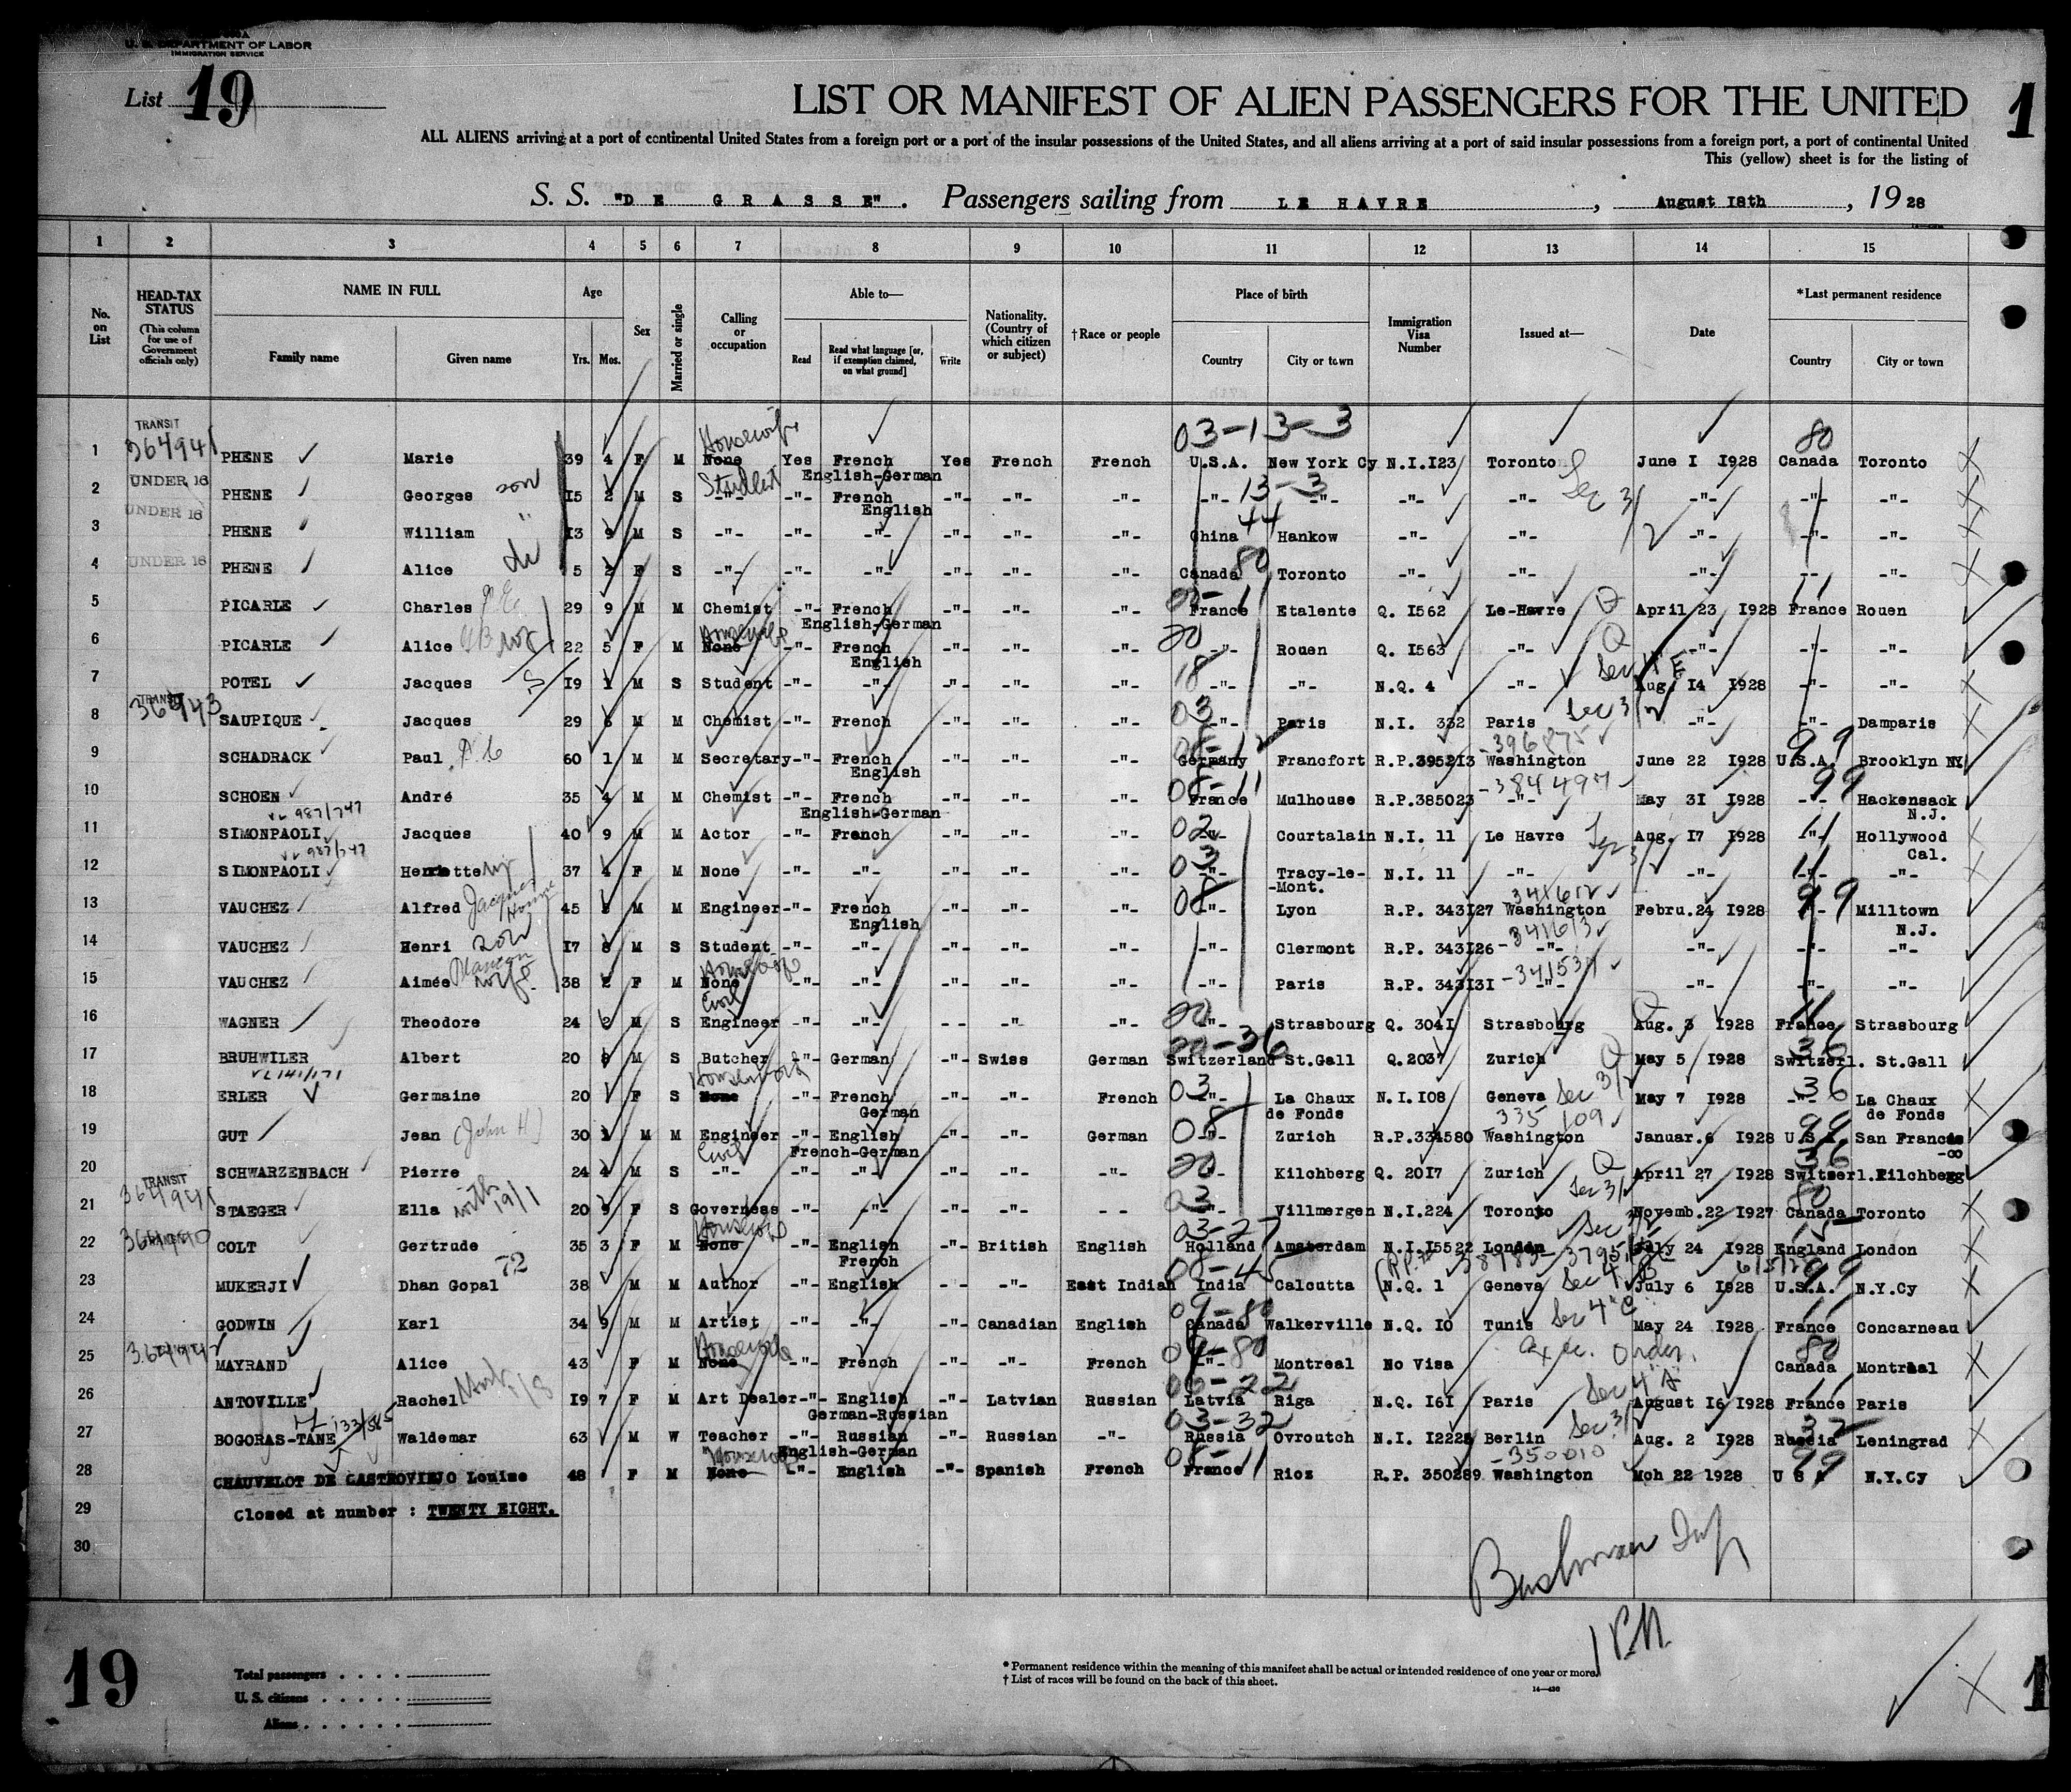 U. S. DEPARTMENT OF LABOR
IMMIGRATION SERVICE
List 19
LIST OR MANIFEST OF ALIEN PASSENGERS FOR THE UNITED
1
ALL ALIENS arriving at a port of continental United States from a foreign port or a port of the insular possessions of the United States, and all aliens arriving at a port of said insular possessions from a foreign port, a port of continental United
This (yellow) sheet is for the listing of
S. S. "DE GRASSE". Passengers sailing from LE HAVRE, August 18th, 19 28
1 2 3 4 5 6 7 8 9 10 11 12 13 14 15
No. on List
HEAD-TAX STATUS (This column for use of Government officials only)
NAME IN FULL Family name Given name
Age Yrs. Mos.
Sex
Married or single
Calling or occupation
Able to— Read Read what language [or, if exemption claimed, on what ground] Write
Nationality. (Country of which citizen or subject)
†Race or people
Place of birth Country City or town
Immigration Visa Number
Issued at—
Date
*Last permanent residence Country City or town
TRANSIT 03-13-3 80
1 364941 PHENE Marie 39 4 F M Housewife None Yes French English-German Yes French French U.S.A. New York Cy N.I.I23 Toronto June I I928 Canada Toronto
2 UNDER 16 PHENE Georges son I5 2 M S Student -"- -"- French English -"- -"- -"- -"- 13-3 -"- -"- -"- Sec 3/2 -"- -"- -"-
3 UNDER 16 PHENE William " I3 9 M S -"- -"- -"- -"- -"- -"- China 44 Hankow -"- -"- -"- -"- -"-
4 UNDER 16 PHENE Alice 5 2 F S -"- -"- -"- -"- -"- -"- Canada 80 Toronto -"- -"- -"- -"- -"-
5 PICARLE Charles 29 9 M M Chemist -"- French English-German -"- -"- -"- France Etalente Q. I562 Le-Havre Q April 23 I928 France Rouen
6 PICARLE Alice 22 5 F M Housewife None -"- French English -"- -"- -"- 20 -"- Rouen Q. I563 -"- Q -"- -"- -"-
7 POTEL Jacques I9 1 M S Student -"- -"- -"- -"- -"- 18 -"- -"- N.Q. 4 -"- Sec 4 E Aug. I4 I928 -"- -"-
8 TRANSIT 364943 SAUPIQUE Jacques 29 6 M M Chemist -"- French -"- -"- -"- 03 -"- Paris N.I. 332 Paris Sec 3/2 -"- -"- Damparis
9 SCHADRACK Paul 60 1 M M Secretary -"- French English -"- -"- -"- 08-12 Germany Francfort R.P.395213 -396875 Washington June 22 I928 99 U.S.A. Brooklyn NY
10 SCHOEN André 35 4 M M Chemist -"- French English-German -"- -"- -"- 08-11 France Mulhouse R.P.385023 -384497 -"- May 3I I928 99 -"- Hackensack N.J.
987/747
11 SIMONPAOLI Jacques 40 9 M M Actor -"- French -"- -"- -"- 02 -"- Courtalain N.I. 11 Le Havre Sec 3/2 Aug. I7 I928 11 Hollywood Cal.
987/747
12 SIMONPAOLI Henriette 37 4 F M None -"- -"- -"- -"- -"- 03 -"- Tracy-le-Mont. N.I. 11 -"- -"- 11 -"-
13 VAUCHEZ Alfred Jacques 45 M M Engineer -"- French English -"- -"- -"- 08 -"- Lyon R.P. 343I27 341612 Washington Febru.24 I928 99 Milltown N.J.
14 VAUCHEZ Henri son I7 8 M S Student -"- -"- -"- -"- -"- -"- Clermont R.P. 343I26 -341613 -"- -"- -"- -"-
15 VAUCHEZ Aimée wife 38 2 F M Housewife None -"- -"- -"- -"- -"- -"- Paris R.P. 343I3I -"- -"- -"- -"-
16 WAGNER Theodore 24 2 M S Civil Engineer -"- -"- - - -"- -"- 20 -"- Strasbourg Q. 304I Strasbourg Q Aug. 3 I928 11 France Strasbourg
17 BRUHWILER Albert 20 8 M S Butcher -"- German -"- Swiss German 20-36 Switzerland St.Gall Q.2037 Zurich Q May 5 I928 36 Switzerl. St.Gall
18 ERLER Germaine 20 F S Housework None -"- French German -"- -"- French 03 -"- La Chaux de Fonds N.I.I08 Geneva Sec 3/2 May 7 I928 36 -"- La Chaux de Fonds
19 GUT Jean (John H) 30 M M Engineer -"- English French-German -"- -"- German 08 -"- Zurich R.P.334580 335109 Washington Januar.6 I928 99 U.S.A. San Francis-co
20 SCHWARZENBACH Pierre 24 4 M S Civil -"- -"- -"- -"- -"- -"- 20 -"- Kilchberg Q. 20I7 Zurich Q April 27 I928 36 Switzerl. Kilchberg
21 TRANSIT STAEGER Ella with 19/1 20 9 F S Governess -"- -"- -"- -"- - - 03 -"- Villmergen N.I.224 Toronto Sec 3/2 Novemb.22 I927 80 Canada Toronto
22 364940 COLT Gertrude 35 3 F M None -"- English French -"- British English 03-27 Holland Amsterdam N.I.I5522 London Sec 3/2 July 24 I928 15 England London
23 MUKERJI Dhan Gopal 72 38 M M Author -"- English -"- -"- East Indian 08-45 India Calcutta N.Q. 1 Geneva Sec 4 B July 6 I928 99 U.S.A. N.Y.Cy
24 GODWIN Karl 34 9 M M Artist -"- -"- -"- Canadian English 09-80 Canada Walkerville N.Q. IO Tunis Sec 4 C May 24 I928 11 France Concarneau
25 MAYRAND Alice 43 F M Housewife None -"- French -"- -"- French 04-80 -"- Montreal No Visa Exec. Order. 80 Canada Montreal
26 ANTOVILLE Rachel I9 7 F M Art Dealer -"- English German-Russian -"- Latvian Russian 06-22 Latvia Riga N.Q. I6I Paris Sec 4 A August I6 I928 11 France Paris
27 BOGORAS-TANE Waldemar 63 M W Teacher -"- Russian English-German -"- Russian -"- 03-32 Russia Ovroutch N.I. I2228 Berlin Sec 3/2 Aug. 2 I928 32 Russia Leningrad
28 CHAUVELOT DE CASTROVIEJO Louise 48 F M Housewife None -"- English -"- Spanish French 08-11 France Rioz R.P. 350289 -350010 Washington Mch 22 1928 99 U S A N.Y.Cy
29 Closed at number : TWENTY EIGHT.
30
Bushman Insp
19
Total passengers
U. S. citizens
Aliens
* Permanent residence within the meaning of this manifest shall be actual or intended residence of one year or more.
† List of races will be found on the back of this sheet.
14—430
1